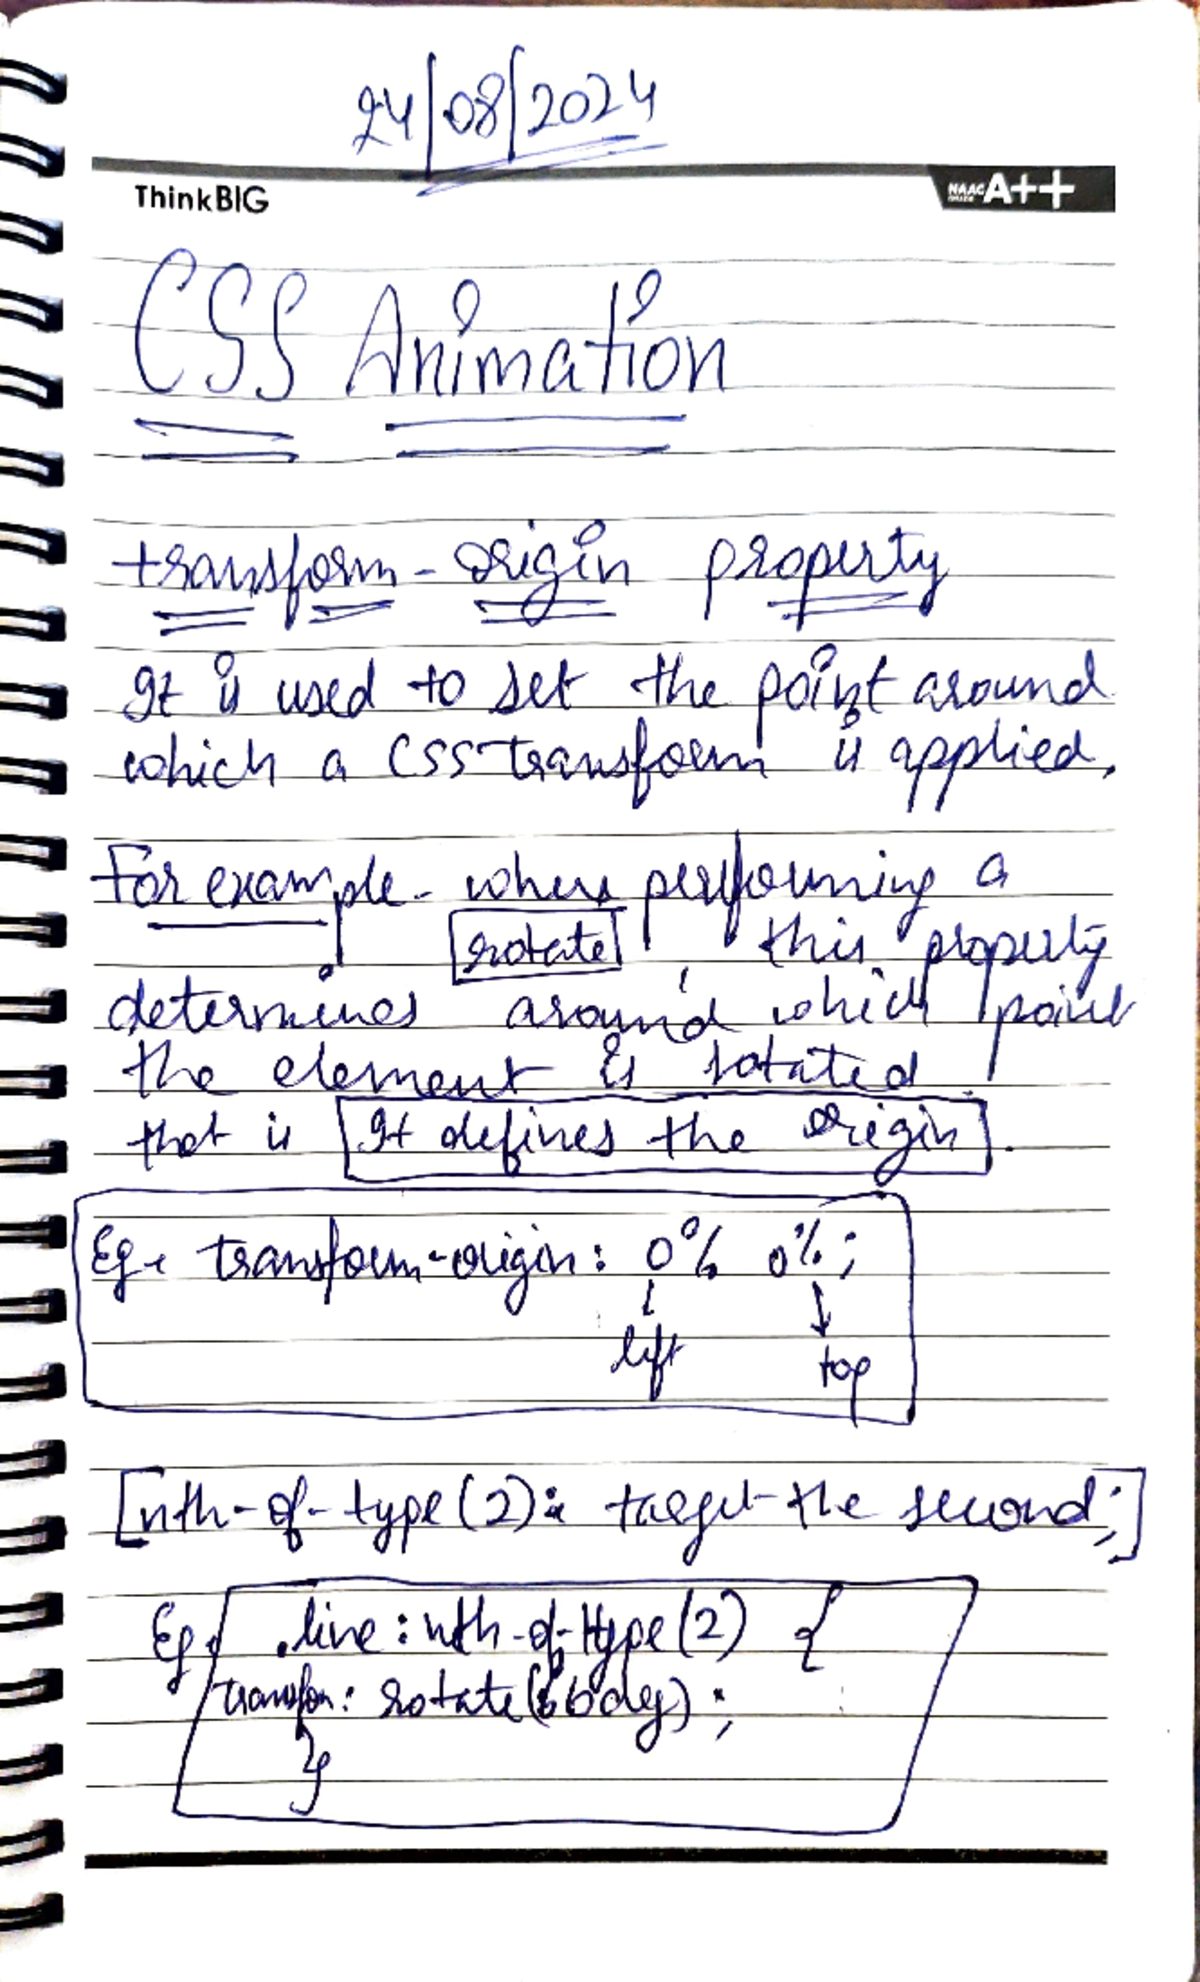 24/08/2024
ThinkBIG
NAAC GRADE A++
CSS Animation
transform-origin property
It is used to set the point around
which a CSS transform is applied.
For example - where performing a
rotate, this property
determines around which point
the element is rotated
that is It defines the origin.
Eg - transform-origin: 0% 0%;
left top
[nth-of-type(2): target the second;]
Eg. .line:nth-of-type(2) {
transfom: rotate(60deg);
}